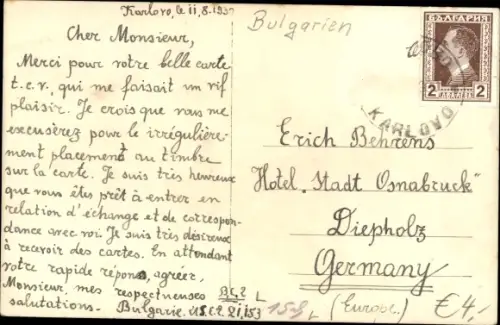 Karlovo, le 11.8.193
Cher Monsieur,
Merci pour votre belle carte
t.c.v., qui me faisait un vif
plaisir. Je crois que vous me
excuserez pour le irrégulière-
ment placement au timbre
sur la carte. Je suis très heureux
que vous êtes prêt à entrer en
relation d'échange et de correspon-
dance avec voi. Je suis très désireux
à recevoir des cartes. En attendant
votre rapide repons, agréer,
Monsieur, mes respectueuses
salutations.
Bulgarie.
Bulgarien
БЪЛГАРИЯ
2 2
KARLOVO
Erich Behrens
Hotel "Stadt Osnabruck"
Diepholz
Germany
(Europe.)
€4,-